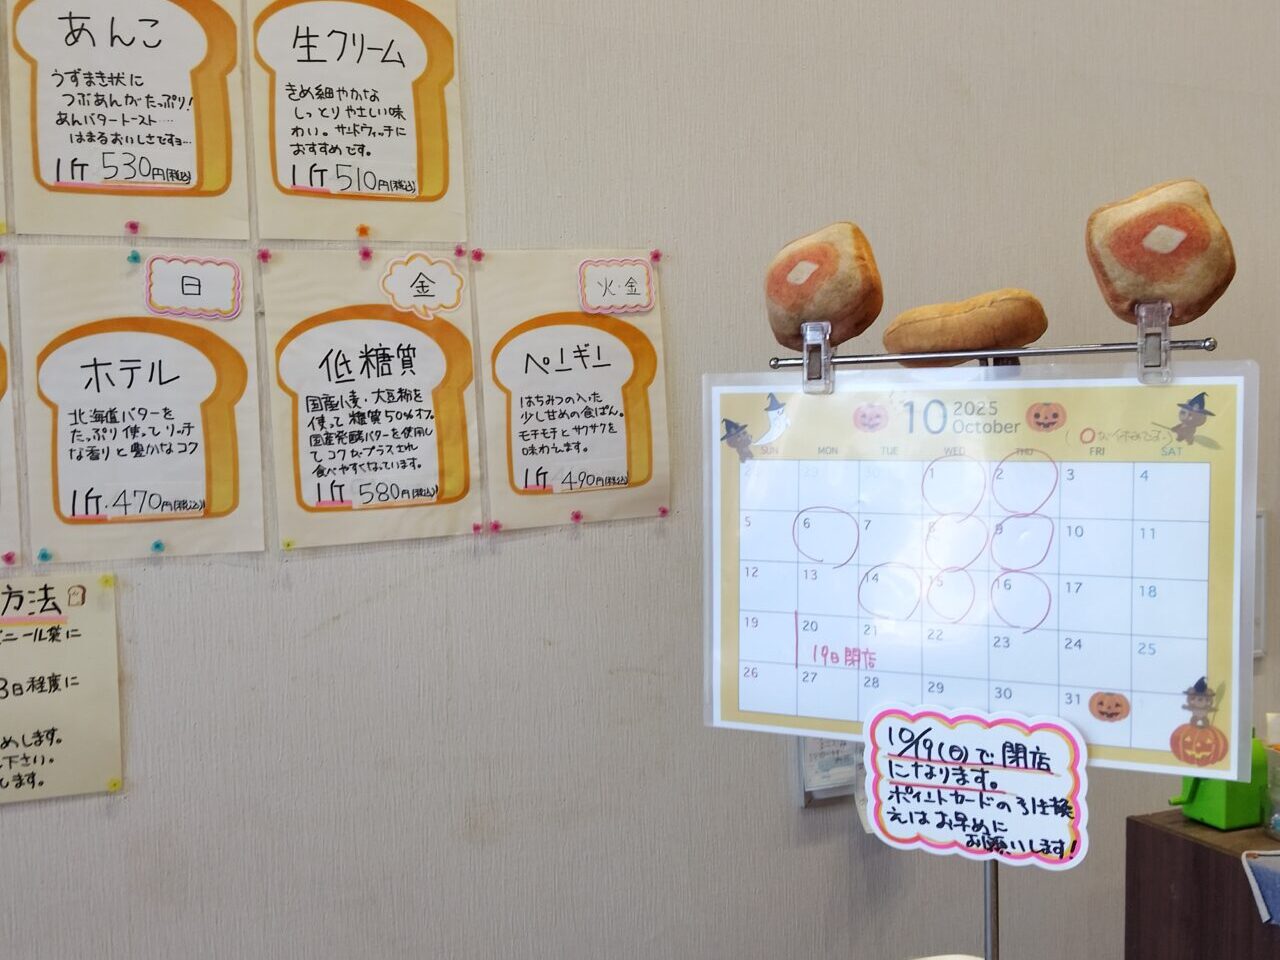 あんこ
うずまき状に
つぶあんがたっぷり!
あんバタートースト…
はまるおいしさですョ…
1斤 530円(税込)
生クリーム
きめ細やかな
しっとりやさしい味
わい。サンドウィッチに
おすすめです。
1斤 510円(税込)
日
ホテル
北海道バターを
たっぷり使ってリッチ
な香りと豊かなコク
1斤・470円(税込)
金
低糖質
国産小麦・大豆粉を
使って糖質50%オフ。
国産発酵バターを使用し
てコクがプラスされ
食べやすくなっています。
1斤 580円(税込)
火・金
ペンギン
はちみつの入った
少し甘めの食ぱん。
モチモチとサクサクを
味わえます。
1斤 490円(税込)
方法
ニール袋に
3日程度に
めします。
下さい。
します。
10 2025
October
(○がお休みです。)
SUN MON TUE WED THU FRI SAT
28 29 30 1 2 3 4
5 6 7 8 9 10 11
12 13 14 15 16 17 18
19 20 21 22 23 24 25
19日閉店
26 27 28 29 30 31
10/19(日)で閉店
になります。
ポイントカードの引き換
えはお早めに
お願いします!